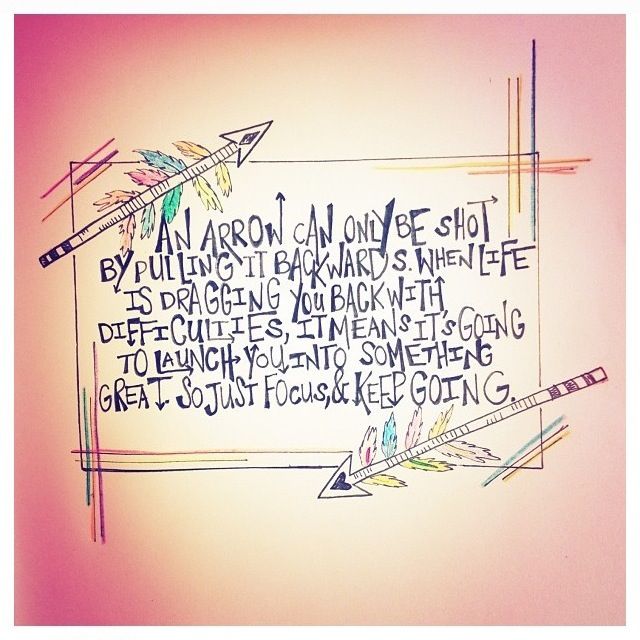 AN ARROW CAN ONLY BE SHOT
BY PULLING IT BACKWARDS. WHEN LIFE
IS DRAGGING YOU BACK WITH
DIFFICULTIES, IT MEANS IT'S GOING
TO LAUNCH YOU INTO SOMETHING
GREAT. SO JUST FOCUS, & KEEP GOING.